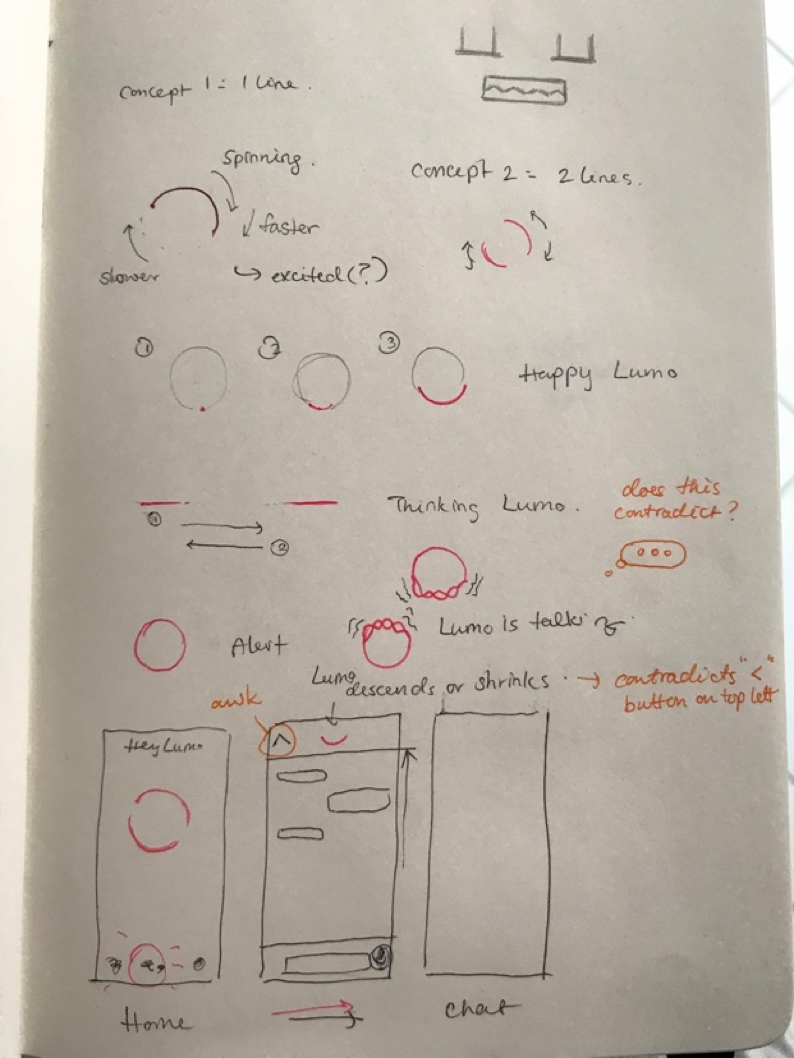 concept 1 = 1 line.
spinning.
concept 2 = 2 lines.
faster
slower
↳ excited(?)
① ② ③
Happy Lumo
Thinking Lumo.
does this
contradict?
①
②
Alert
Lumo is talking.
Lumo
descends or shrinks. → contradicts "<"
button on top left
awk
Hey Lumo
Home
Chat